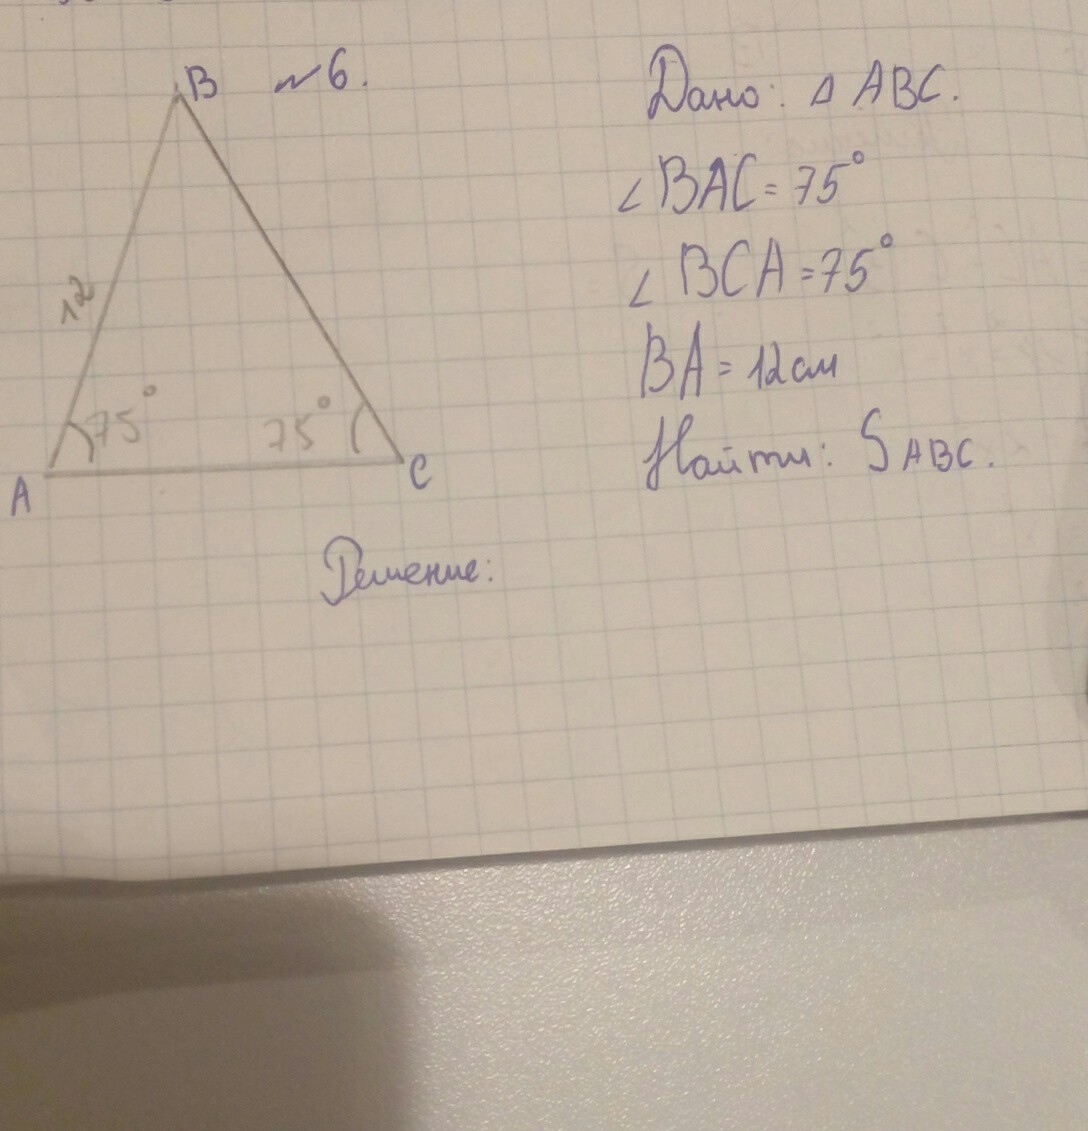 B №6.
12
75°
75°
A
C
Дано: △ ABC.
∠ BAC = 75°
∠ BCA = 75°
BA = 12 см
Найти: S ABC.
Решение: